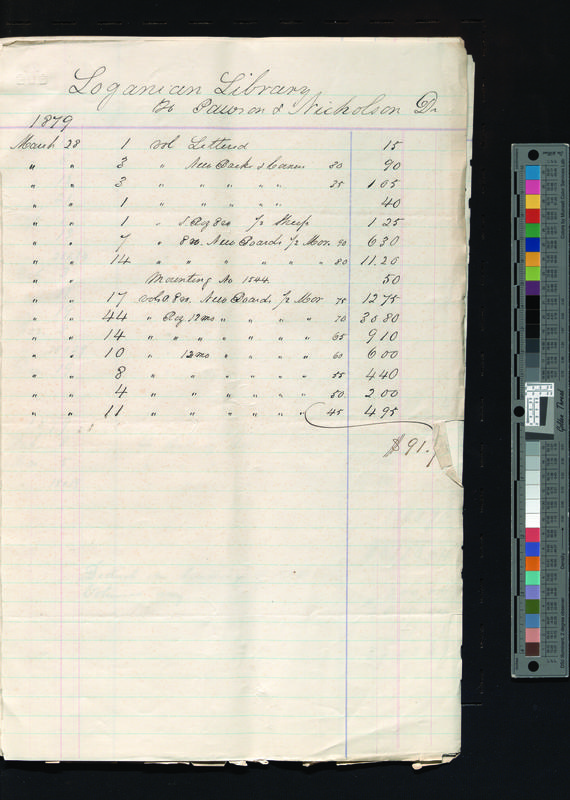 Loganian Library
To Pawson & Nicholson Dr
1879
March 28 1 vol Lettered 15
" " 3 " New Backs & Corners 30 90
" " 3 " " " " " 35 1 05
" " 1 " " " " " 40
" " 1 " 8vo 1/2 Sheep 1 25
" " 7 " 8vo. New Boards 1/2 Mor. 90 6 30
" " 14 " " " " " " 80 11.20
" " Mounting No 1544. 50
" " 17 vols 8vo. New Boards 1/2 Mor 75 12 75
" " 44 " 12mo " " " " 70 30 80
" " 14 " " " " " " " 65 9 10
" " 10 " 12mo " " " " 60 6 00
" " 8 " " " " " " 55 4 40
" " 4 " " " " " " 50 2 00
" " 11 " " " " " " 45 4 95
$91.